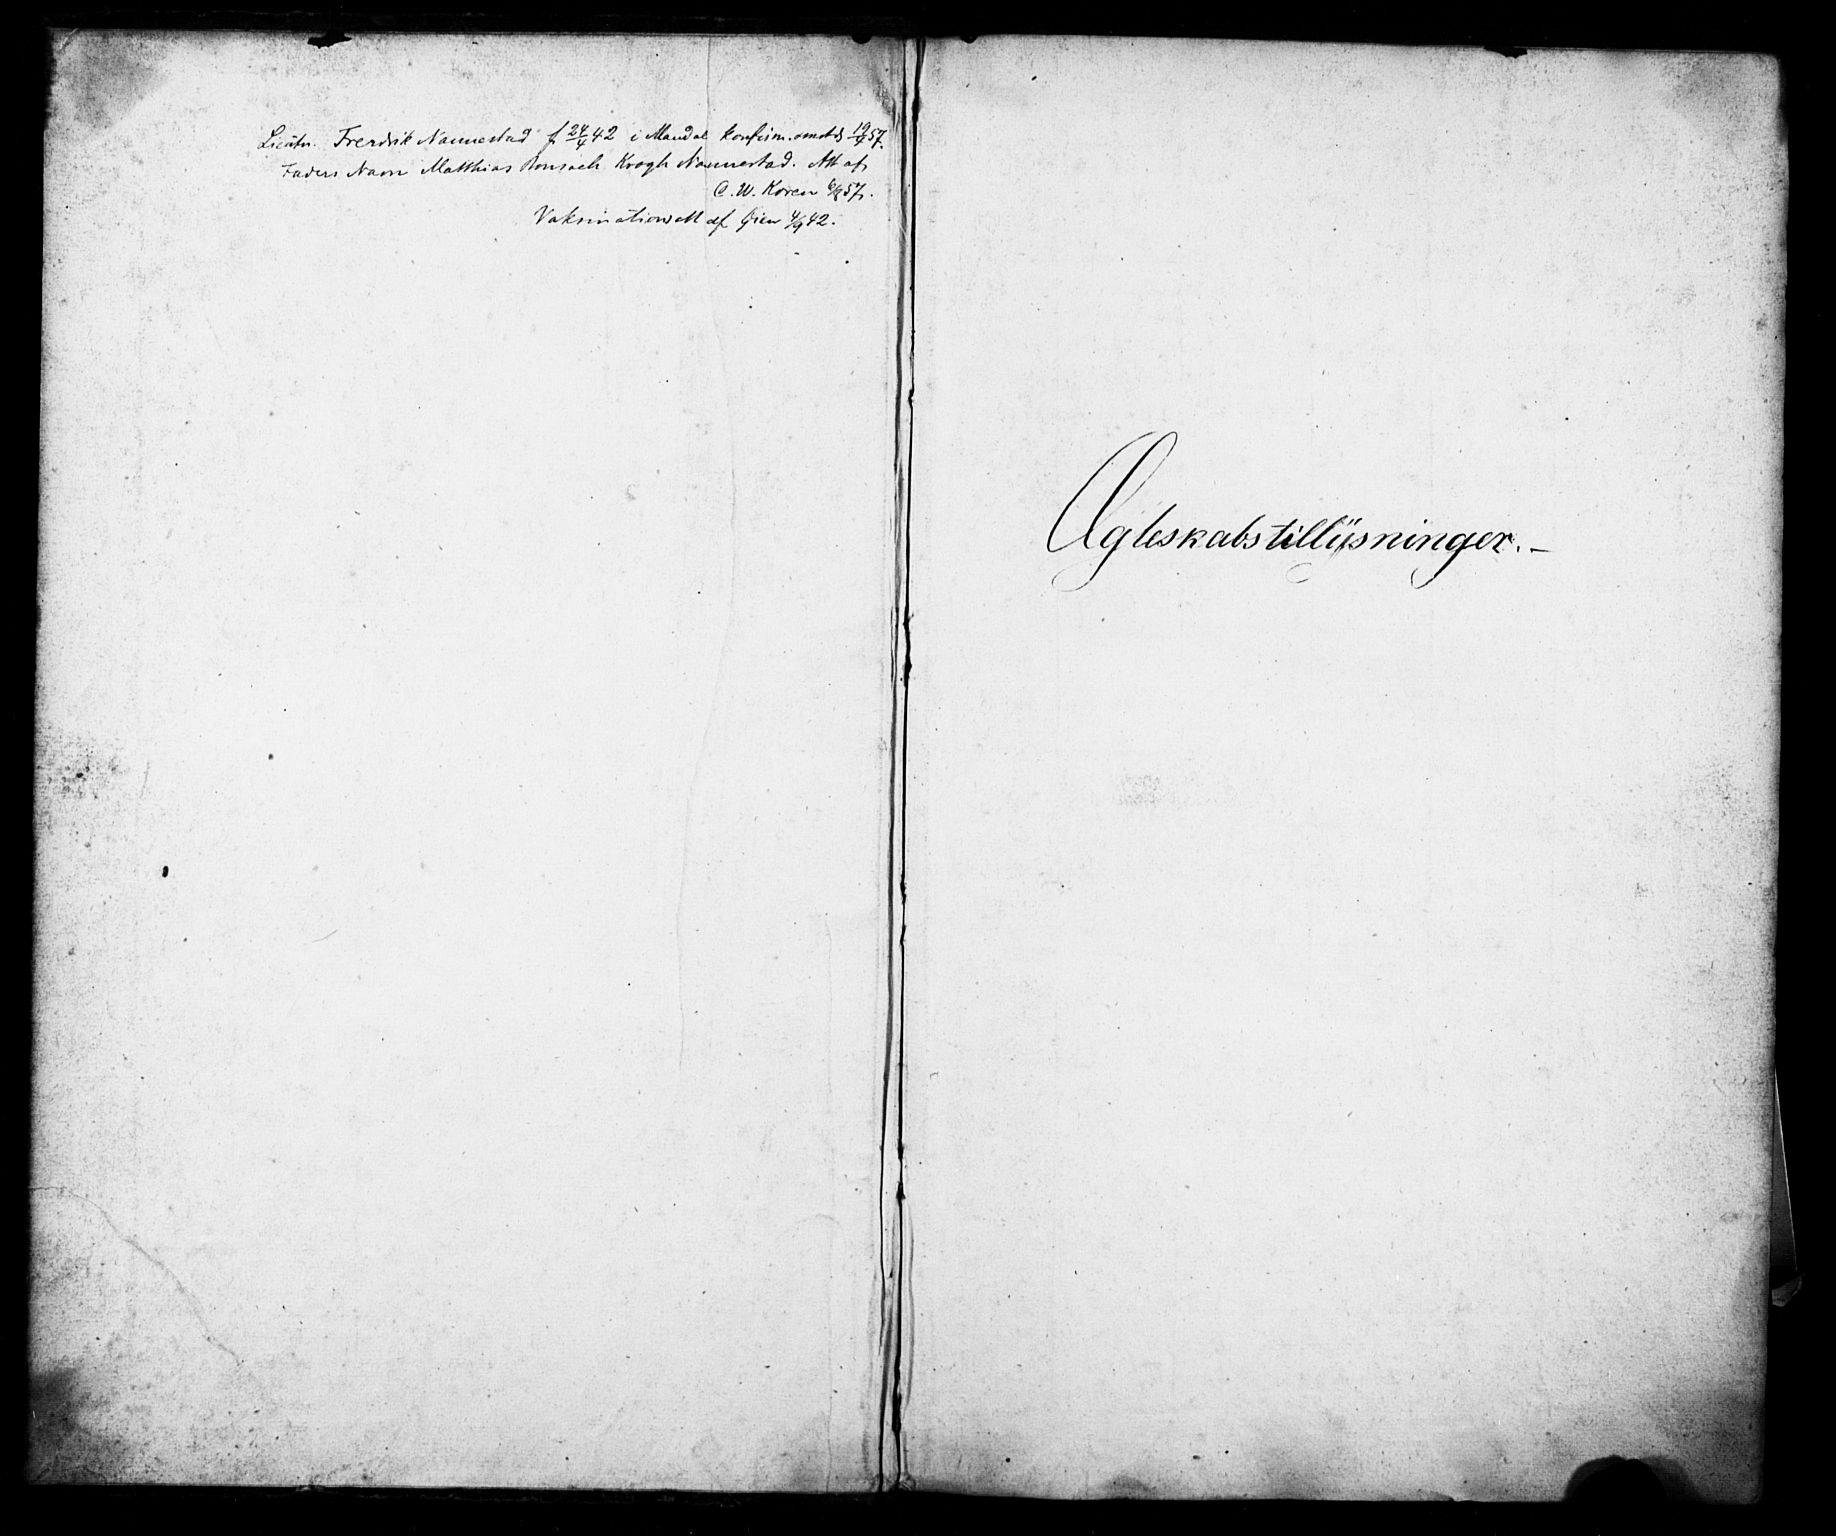 Lieutn. Fredrik Nannestad f 24/4 42 i Mandal konfirm. 19/4 57.
Faders Navn Matthias Bonsach Krogh Nannestad. Att af
C. W. Koren 6/8 57.
Vaksinationsatt af Gien 4/9 42.
Ægteskabstillÿsninger. –